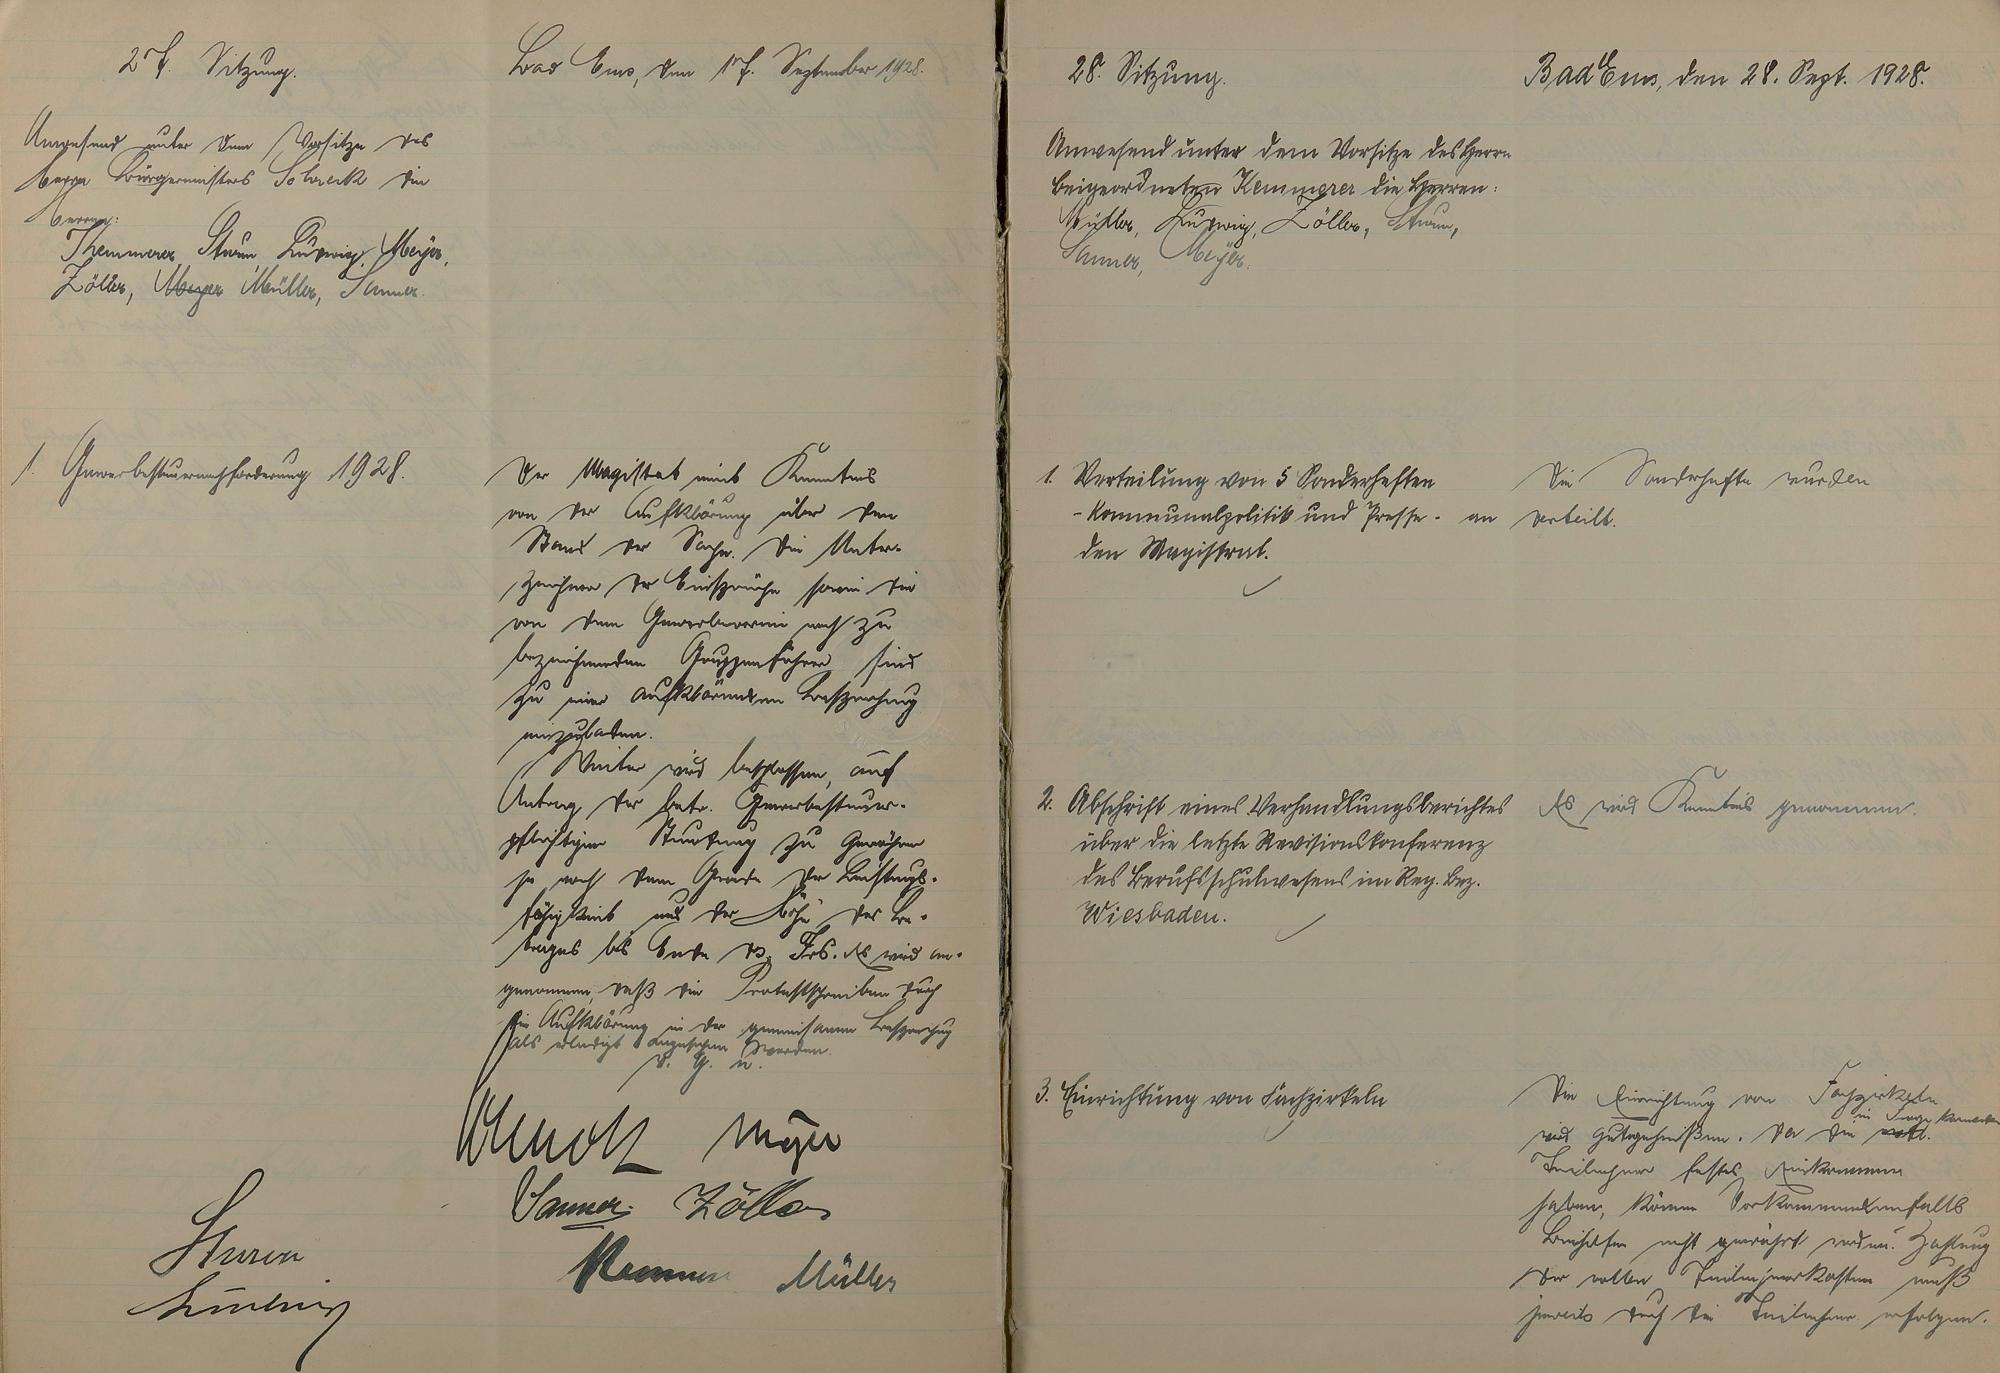 27. Sitzung.
Bad Ems, den 17. September 1928.
Anwesend unter dem Vorsitze des
Herrn Bürgermeisters Schreck die
Herren:
Themmerer, Sturm, Ludwig, Meyer,
Zöller, Meyer Müller, Sanner.
1. Gewerbesteuernachforderung 1928.
Der Magistrat nimmt Kenntnis
von der Aufklärung über den
Stand der Sache. Die Unter-
zeichner der Einsprüche sowie die
von dem Gewerbeverein noch zu
bezeichnenden Gruppenführer sind
zu einer aufklärenden Besprechung
einzuladen.
Weiter wird beschlossen, auf
Antrag der betr. Gewerbesteuer-
pflichtigen Stundung zu gewähren
je nach dem Grade der Leistungs-
fähigkeit und der Höhe des Be-
trages bis Ende ds. Jrs. Es wird an-
genommen, daß die Protestschreiben durch
die Aufklärung in der gemeinsamen Besprechung
als erledigt angesehen werden.
v. g. u.
Meyer
Sanner. Zöller
Müller
Sturm
Ludwig
28. Sitzung.
Bad Ems, den 28. Sept. 1928.
Anwesend unter dem Vorsitze des Herrn
Beigeordneten Kemmerer die Herren:
Müller, Ludwig, Zöller, Sturm,
Sanner, Meyer.
1. Verteilung von 5 Sonderheften
- Kommunalpolitik und Presse - an
den Magistrat.
Die Sonderhefte wurden
verteilt.
2. Abschrift eines Verhandlungsberichtes
über die letzte Revisionskonferenz
des Berufsschulwesens im Reg. Bez.
Wiesbaden.
Es wird Kenntnis genommen.
3. Einrichtung von Fachzirkeln
Die Einrichtung von Fachzirkeln
wird gutgeheißen. Da die in Frage kommenden
Teilnehmer festes Einkommen
haben, können Vorkommendenfalls
Beihilfen nicht gewährt werden. Zahlung
der vollen Teilnehmerkosten muß
jeweils durch die Teilnehmer erfolgen.